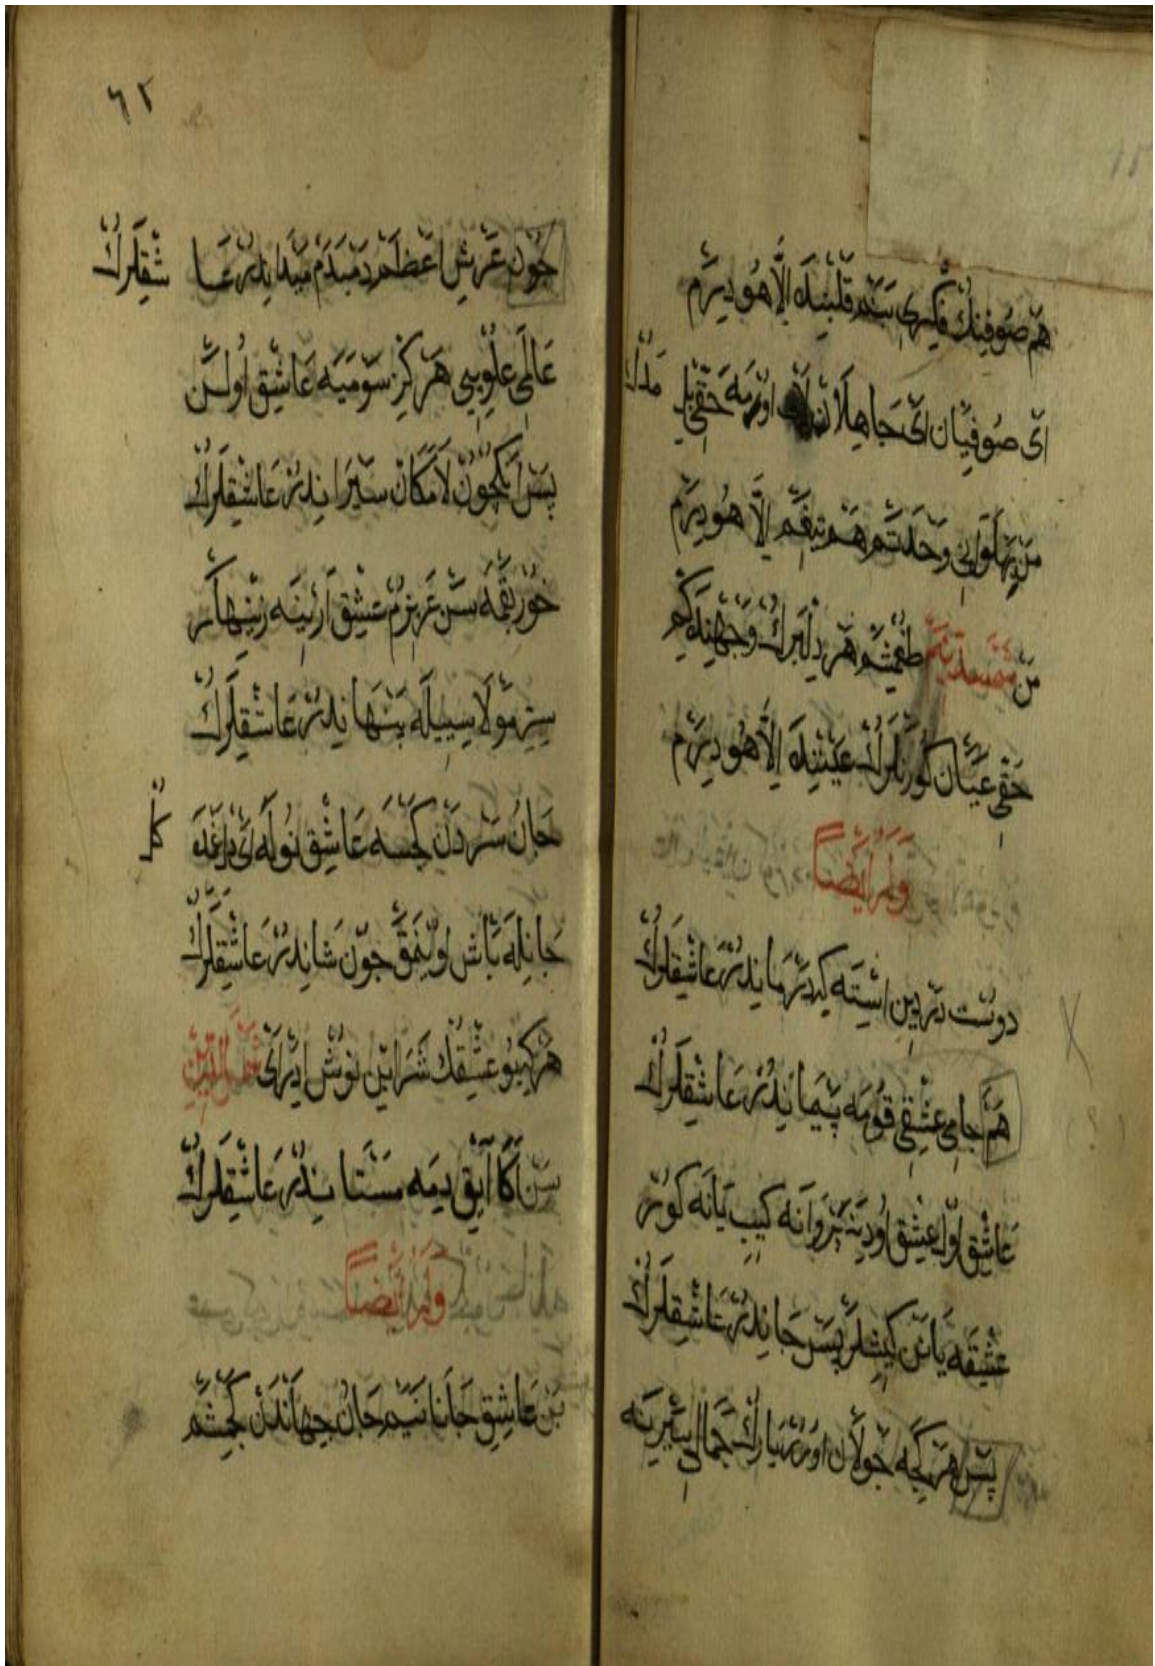 هم صوفینك فكری بنم قلبینده الا هو دیرم
ای صوفیان ای جاهلان اورمه حقی بل مدك
من پهلوانی وحدتم هم نیغم الا هو دیرم
من طغمشم هر دلبرك وجهنده كم
حقی عیان كورنلرك عیننده الا هو دیرم
وله ایضا
دوست دردین استه كیدرمانیدر عاشقلرك
هم جامی عشقی قومه پیمانیدر عاشقلرك
عاشق اول عشق اودینه پروانه كیبی یانه كور
عشیقه یانن كیشلر پس جانیدر عاشقلرك
پس هر كجه جولان اورر یارك جمالی سیرینه
٦٢
چون عرش اعظم دمبدم میدانیدر عاشقلرك
عالمی علویی هركز سومیه عاشق اولن
پس انكچون لامكان سیرانیدر عاشقلرك
خور بقمه سن عزیزم عشق ارینه زینهار
سر مولا سیله پنهانیدر عاشقلرك
جان سردن كچسه عاشق نوله ای داغده كل
جانله باش اوینمق چون شانیدر عاشقلرك
هر كیم بو عشقك شرابین نوش ایدر ای شمس الدین
سن اكا ایق دیمه مستانیدر عاشقلرك
وله ایضا
بن عاشق جانانیم جان جهاندن كچمشم